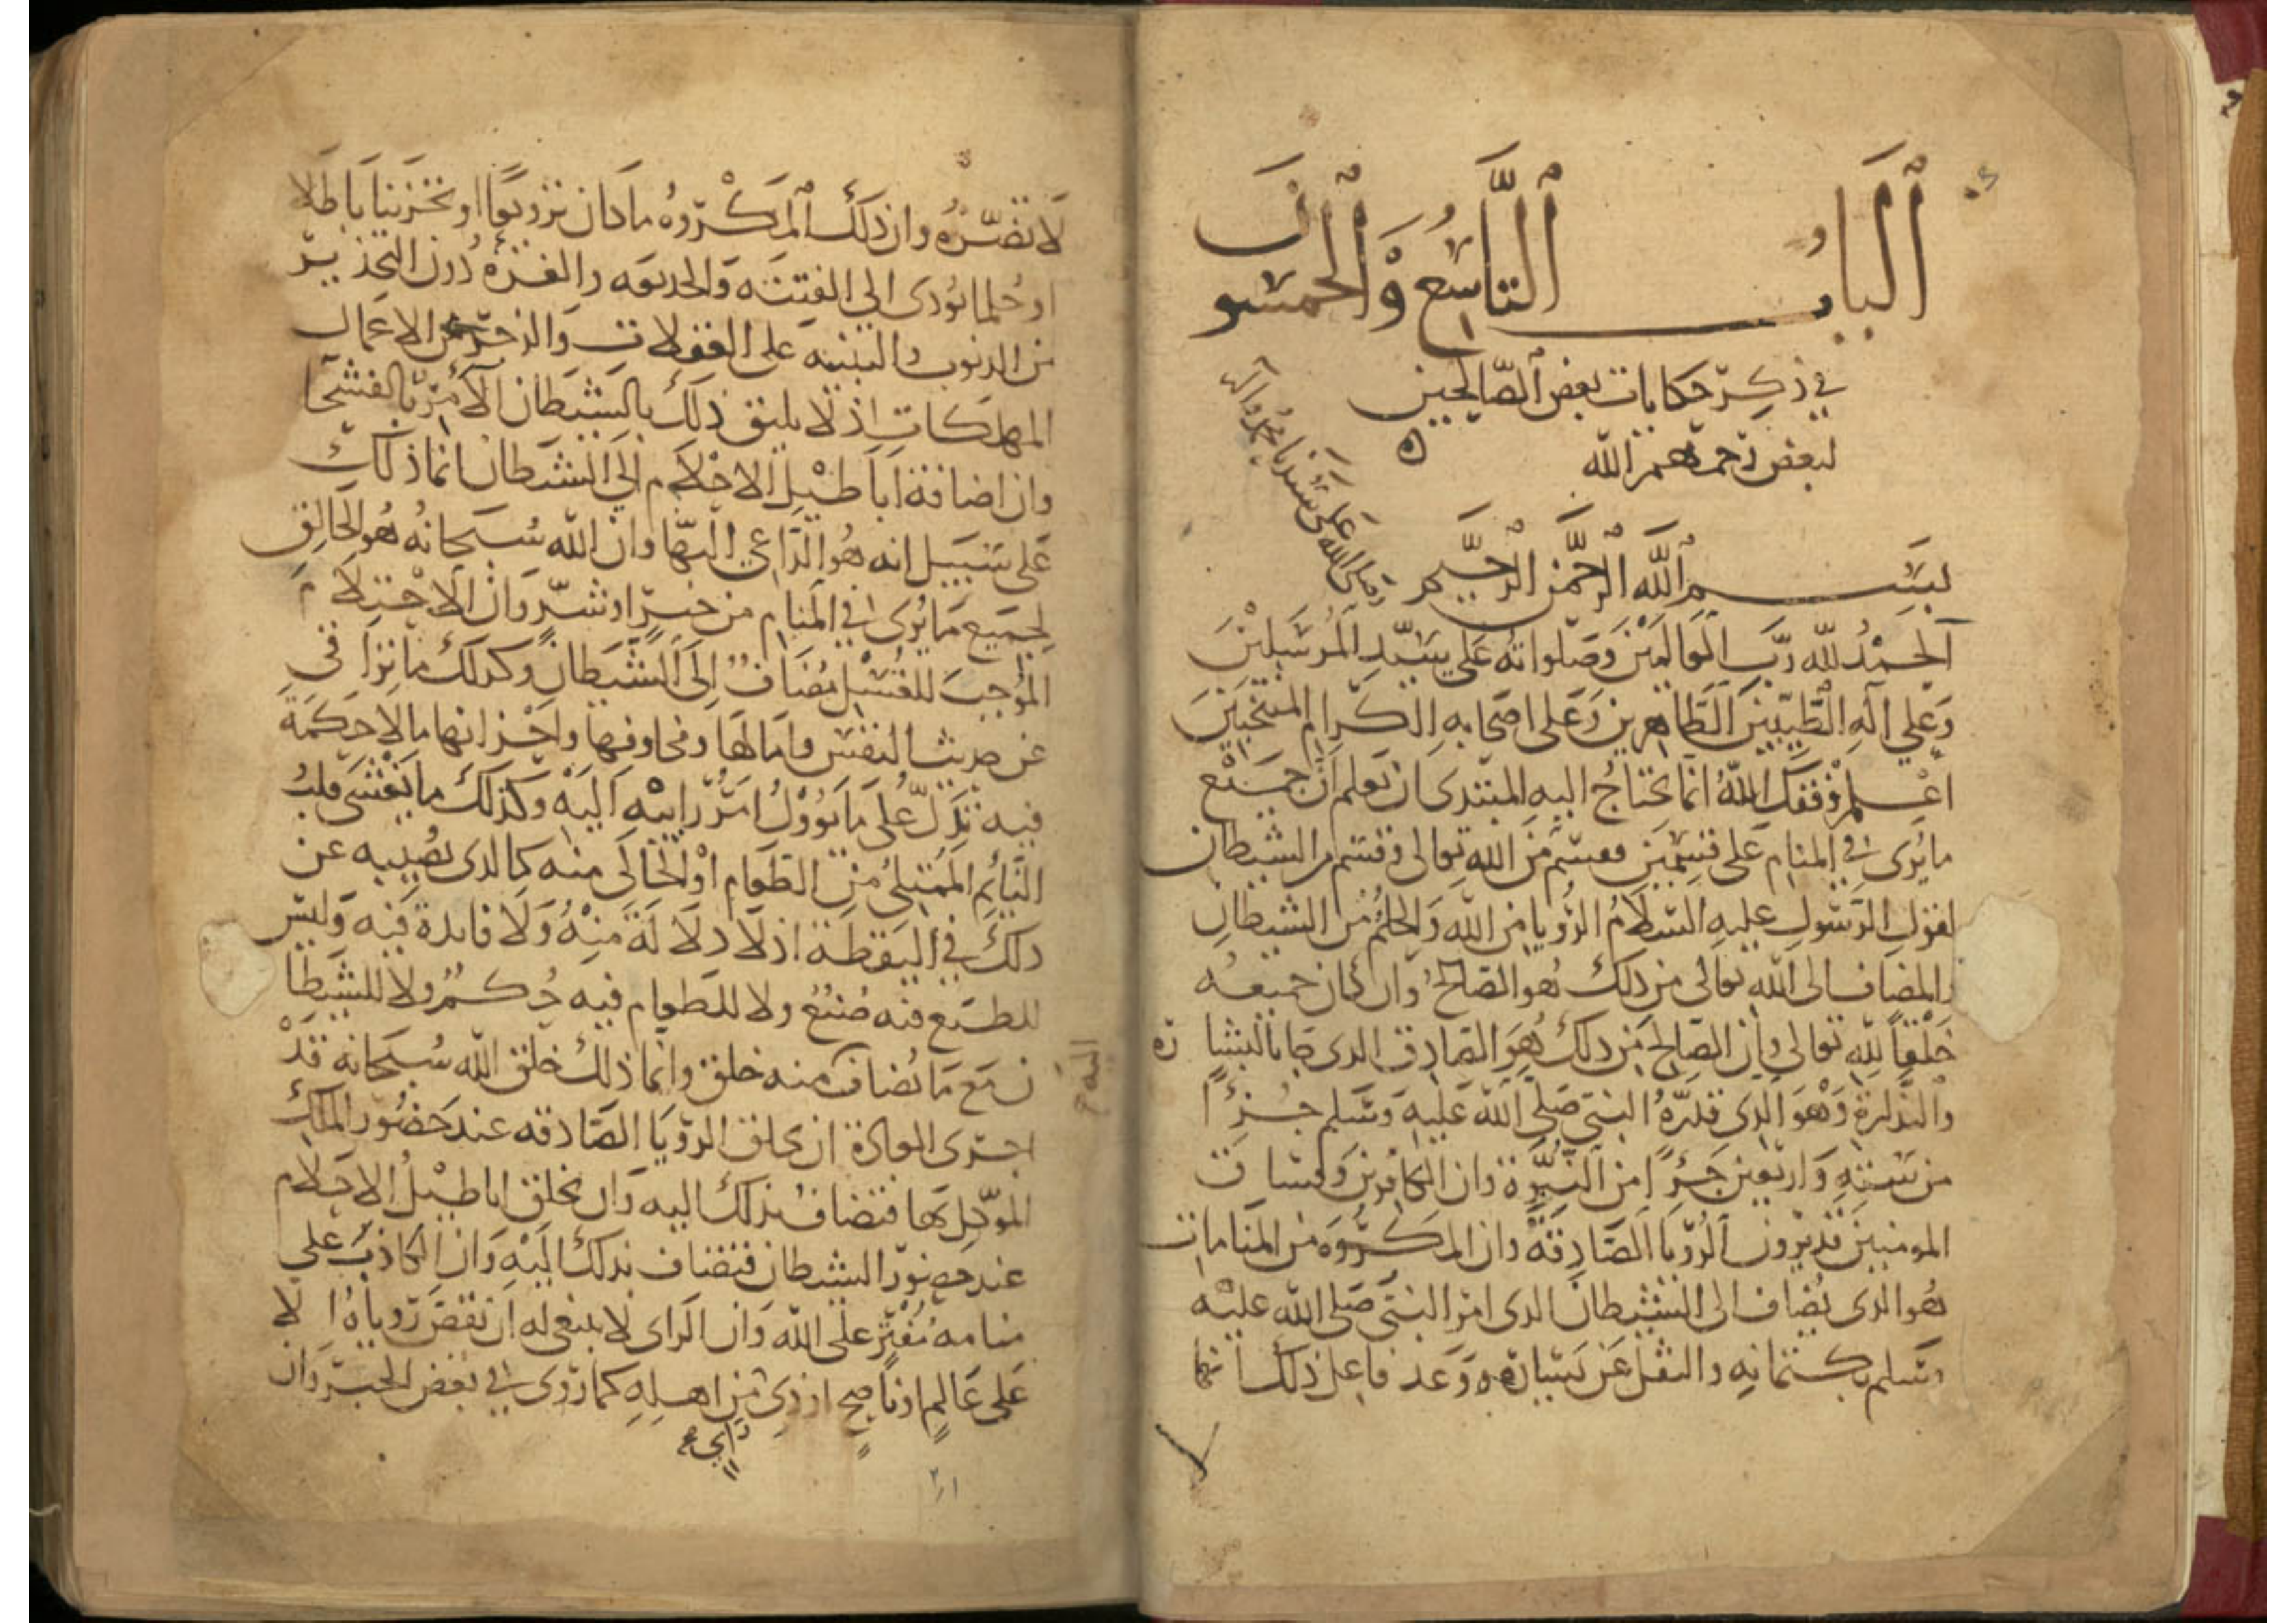 ٱلبابُ التَّاسِعُ وَٱلخمسون
في ذكر حكايات بعض الصّالحين
لبعض رحمهم الله
وصلى الله على سيدنا محمد وآله
بسم الله الرحمن الرحيم
الحمد لله ربّ العالمين وصلواته على سيّد المرسلين
وعلي آله الطيّبين الطاهرين وعلى اصحابه الكرام المنتخبين
اعلم وفقك الله انما يحتاج اليه المبتدى ان تعلم أنّ جميع
ما يُرى في المنام على قسمين فقسم من الله تعالى وقسم من الشيطان
لقول الرسول عليه السلام الرؤيا من الله والحلم من الشيطان
والمضاف الى الله تعالى من ذلك هو الصالح وان كان جميعه
خلقا لله تعالى وان الصالح من ذلك هو الصادق الذى جا بالبشا ره
والنذارة وهو الذى قدّره النبي صلى الله عليه وسلم جزءًا
من ستة واربعين جزءًا من النبوّة وان الكافرين وفساق
المومنين قد يرون الرؤيا الصادقة وان المكروه من المنامات
هو الذى يضاف الى الشيطان الذى امر النبي صلى الله عليه
وسلم بكتمانه والتفل عن يساره ووعد فاعل ذلك انها
لا تضرّه وان ذلك المكروه ما كان ترويعا او تحزينا باطلا
او حلما يؤدى الى الفتنة والخديعه والغرة دون التحذير
من الذنوب والتنبيه على الغفلات والزجر عن الاعمال
المهلكات اذ لا يليق ذلك بالشيطان الآمر بالفحشا
وان اضافة اباطيل الاحلام الى الشيطان انما ذلك
على سبيل انه هو الداعي اليها وان الله سبحانه هو الخالق
لجميع ما يُرى في المنام من خير او شر وان الاحتلام
الموجب للغسل مضاف الى الشيطان وكذلك ما تراءى
من حديث النفس وامالها ومخاوفها واحزانها مما لا حكمة
فيه تدل على ما يؤول امر رايه اليه وكذلك ما يغشى قلب
النائم الممتلئ من الطعام او الخالي منه كالذى يصيبه عن
ذلك في اليقظة اذ لا دلالة منه ولا فايدة فيه وليس
للطبع فيه صنع ولا للطعام فيه حكم ولا للشيطا
ن مع ما يضاف منه خلق وانما ذلك خلق الله سبحانه قد
اجرى العادة ان يخلق الرؤيا الصادقه عند حضور الملك
الموكل بها فتضاف بذلك اليه وان يخلق اباطيل الاحلام
عند حضور الشيطان فتضاف بذلك اليه وان الكاذب على
منامه مفتر على الله وان الراى لا ينبغى له ان يقص رؤياه الا
على عالم او ناصح او ذى من اهله كما روى في بعض الخبر وان
راي